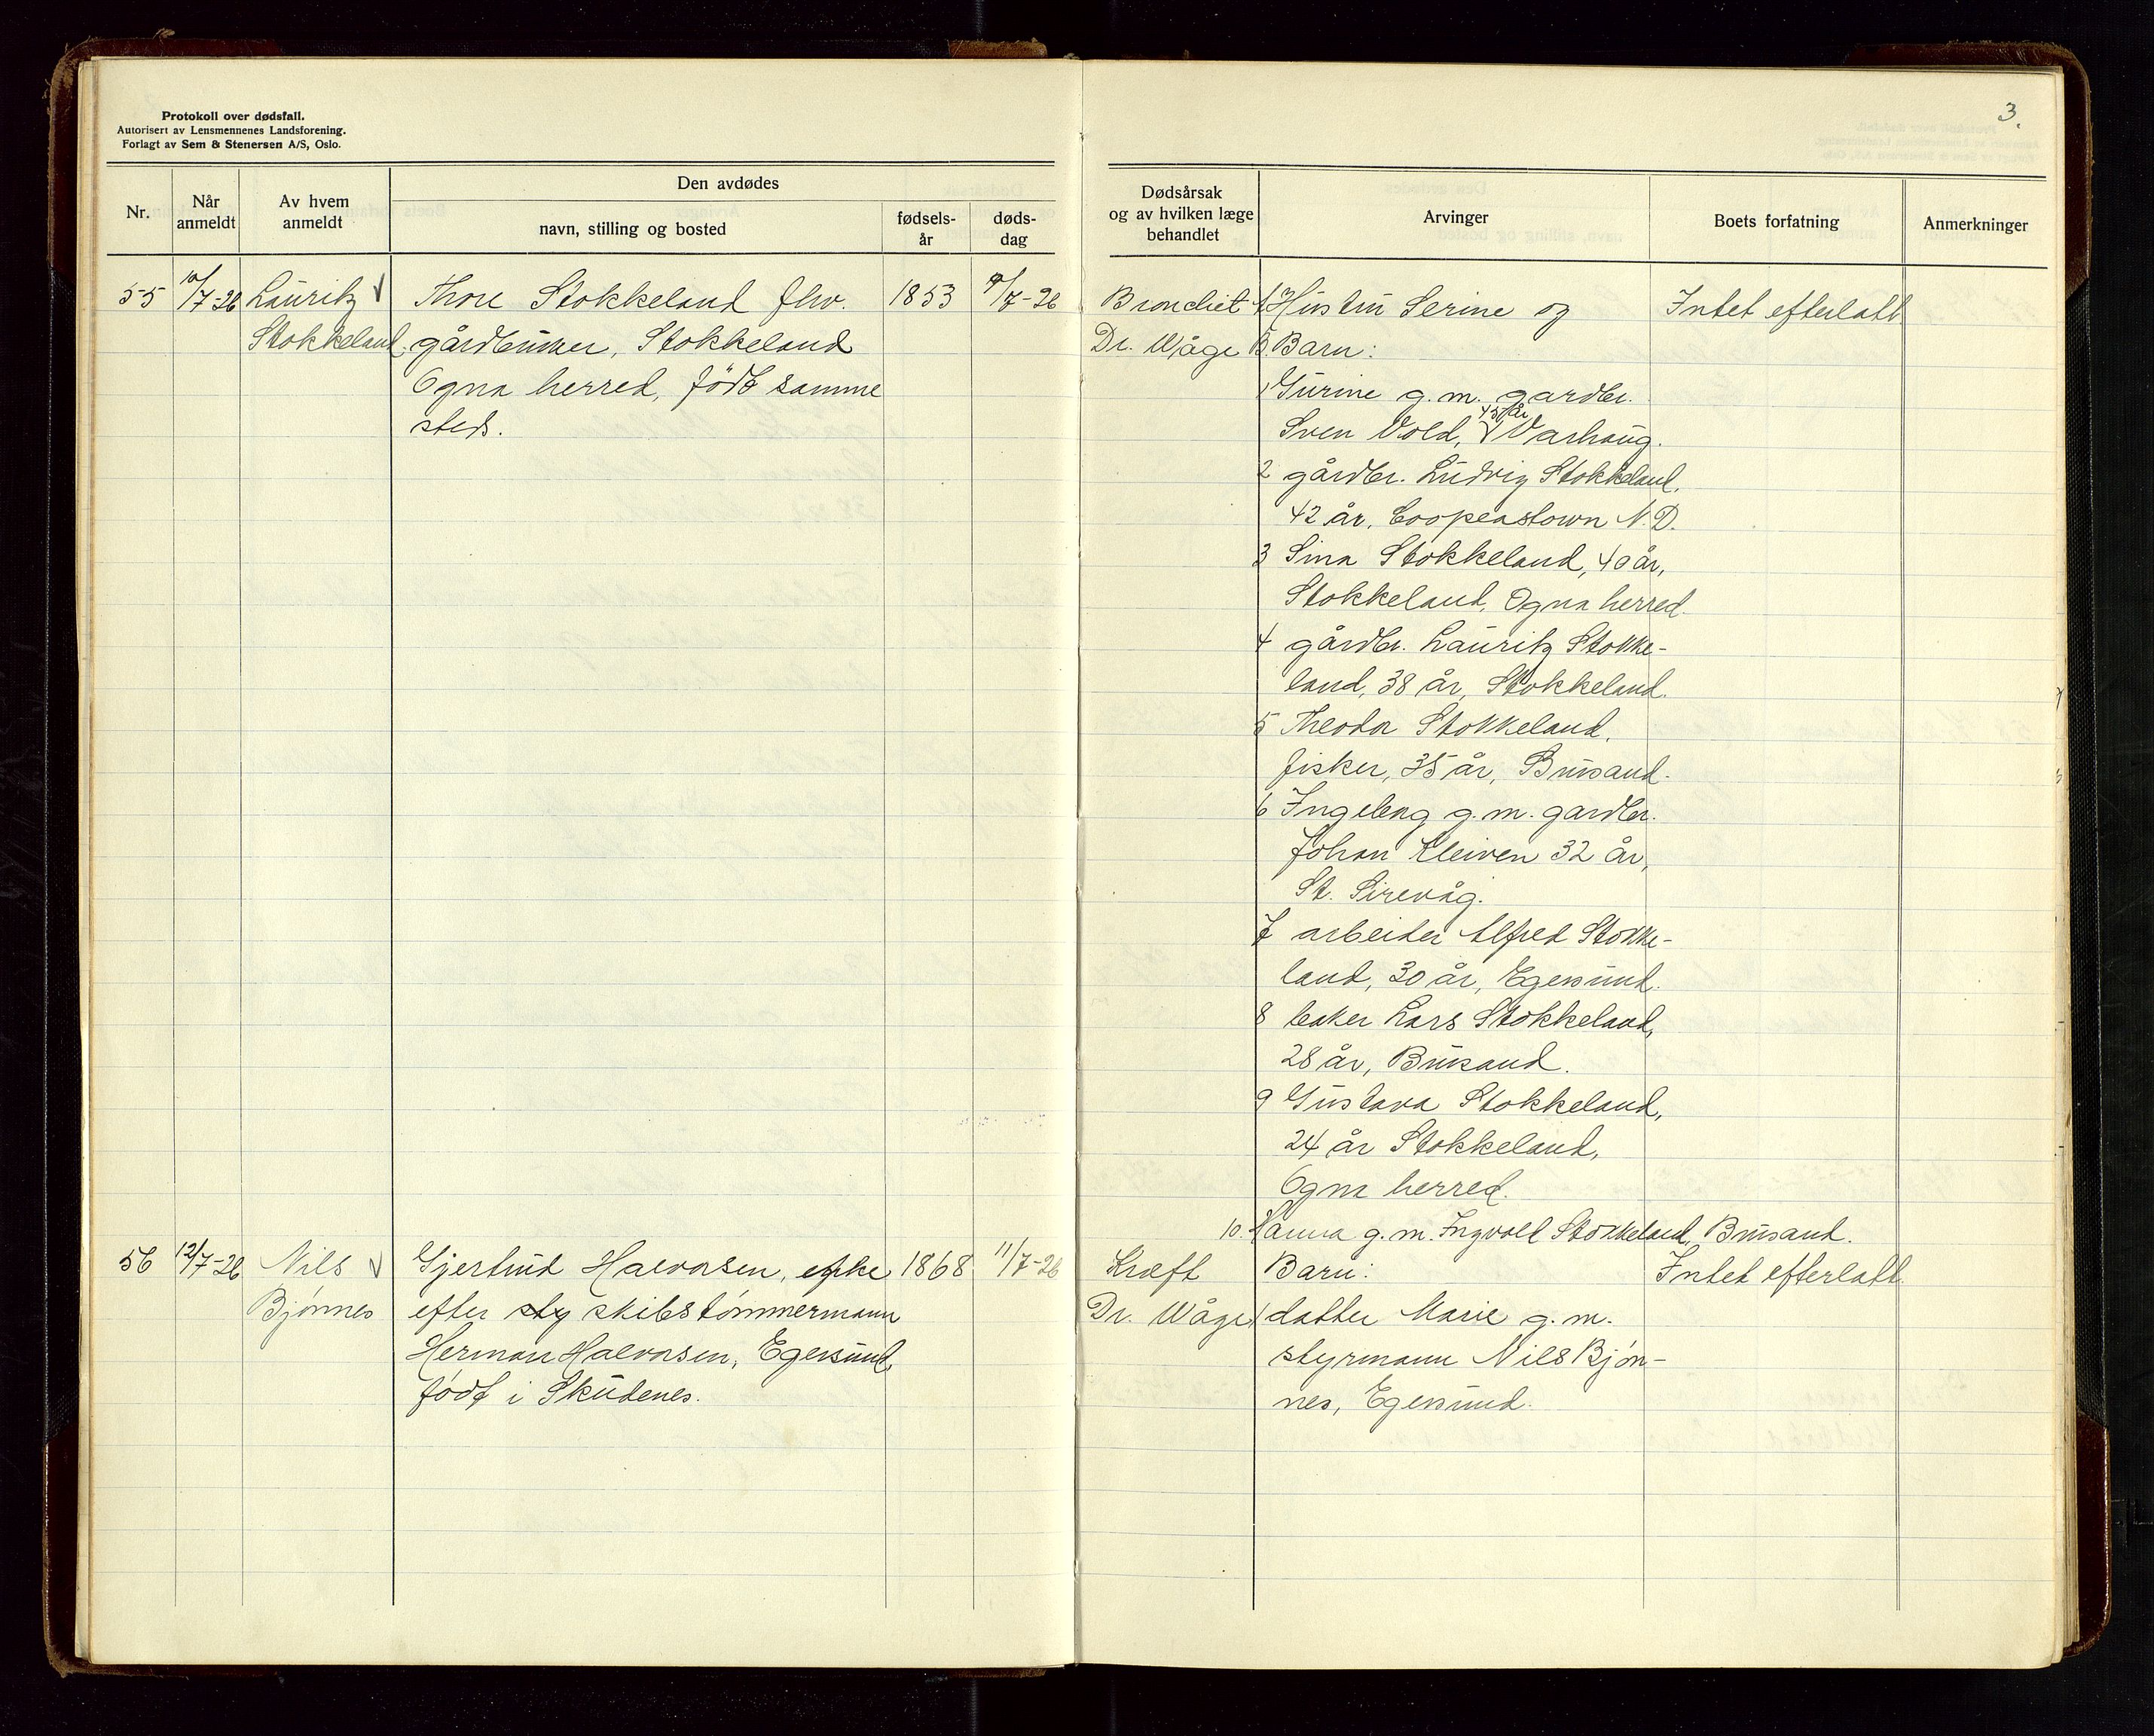 Protokoll over dødsfall.
Autorisert av Lensmennenes Landsforening.
Forlagt av Sem & Stenersen A/S, Oslo.
Nr.
Når anmeldt
Av hvem anmeldt
Den avdødes
navn, stilling og bosted
fødsels-år
døds-dag
55
10/7-26
Lauritz Stokkeland
Thore Stokkeland fhv.
gårdbruker, Stokkeland
Ogna herred, født samme
sted.
1853
9/7-26
56
12/7-26
Nils
Bjønnes
Gjertrud Halvorsen, enke
efter sty skibstømmermann
Herman Halvorsen, Egersund
født i Skudenes.
1868
11/7-26
3.
Dødsårsak
og av hvilken læge
behandlet
Arvinger
Boets forfatning
Anmerkninger
Bronchit
Dr. Wåge
A Hustru Serine og
B. Barn:
1 Gurine g.m. gardbr.
Sven Vold, 45 år Varhaug.
2 gårdbr. Ludvig Stokkeland,
42 år, Cooperstown N.D.
3 Sina Stokkeland, 40 år,
Stokkeland, Ogna herred.
4 gårdbr. Lauritz Stokke-
land, 38 år, Stokkeland.
5 Theodor Stokkeland,
fisker, 35 år, Brusand.
6 Ingeborg g.m. gardbr.
Johan Kleiven 32 år,
St. Sirevåg.
7 arbeider Alfred Stokke-
land, 30 år, Egersund.
8 baker Lars Stokkeland,
28 år, Brusand.
9 Gustava Stokkeland,
24 år Stokkeland,
Ogna herred.
10. Hanna g.m. Ingvald Stokkeland, Brusand.
Intet efterlatt
Kræft
Dr. Wåge
Barn:
1 datter Marie g.m.
styrmann Nils Bjøn-
nes, Egersund.
Intet efterlatt.